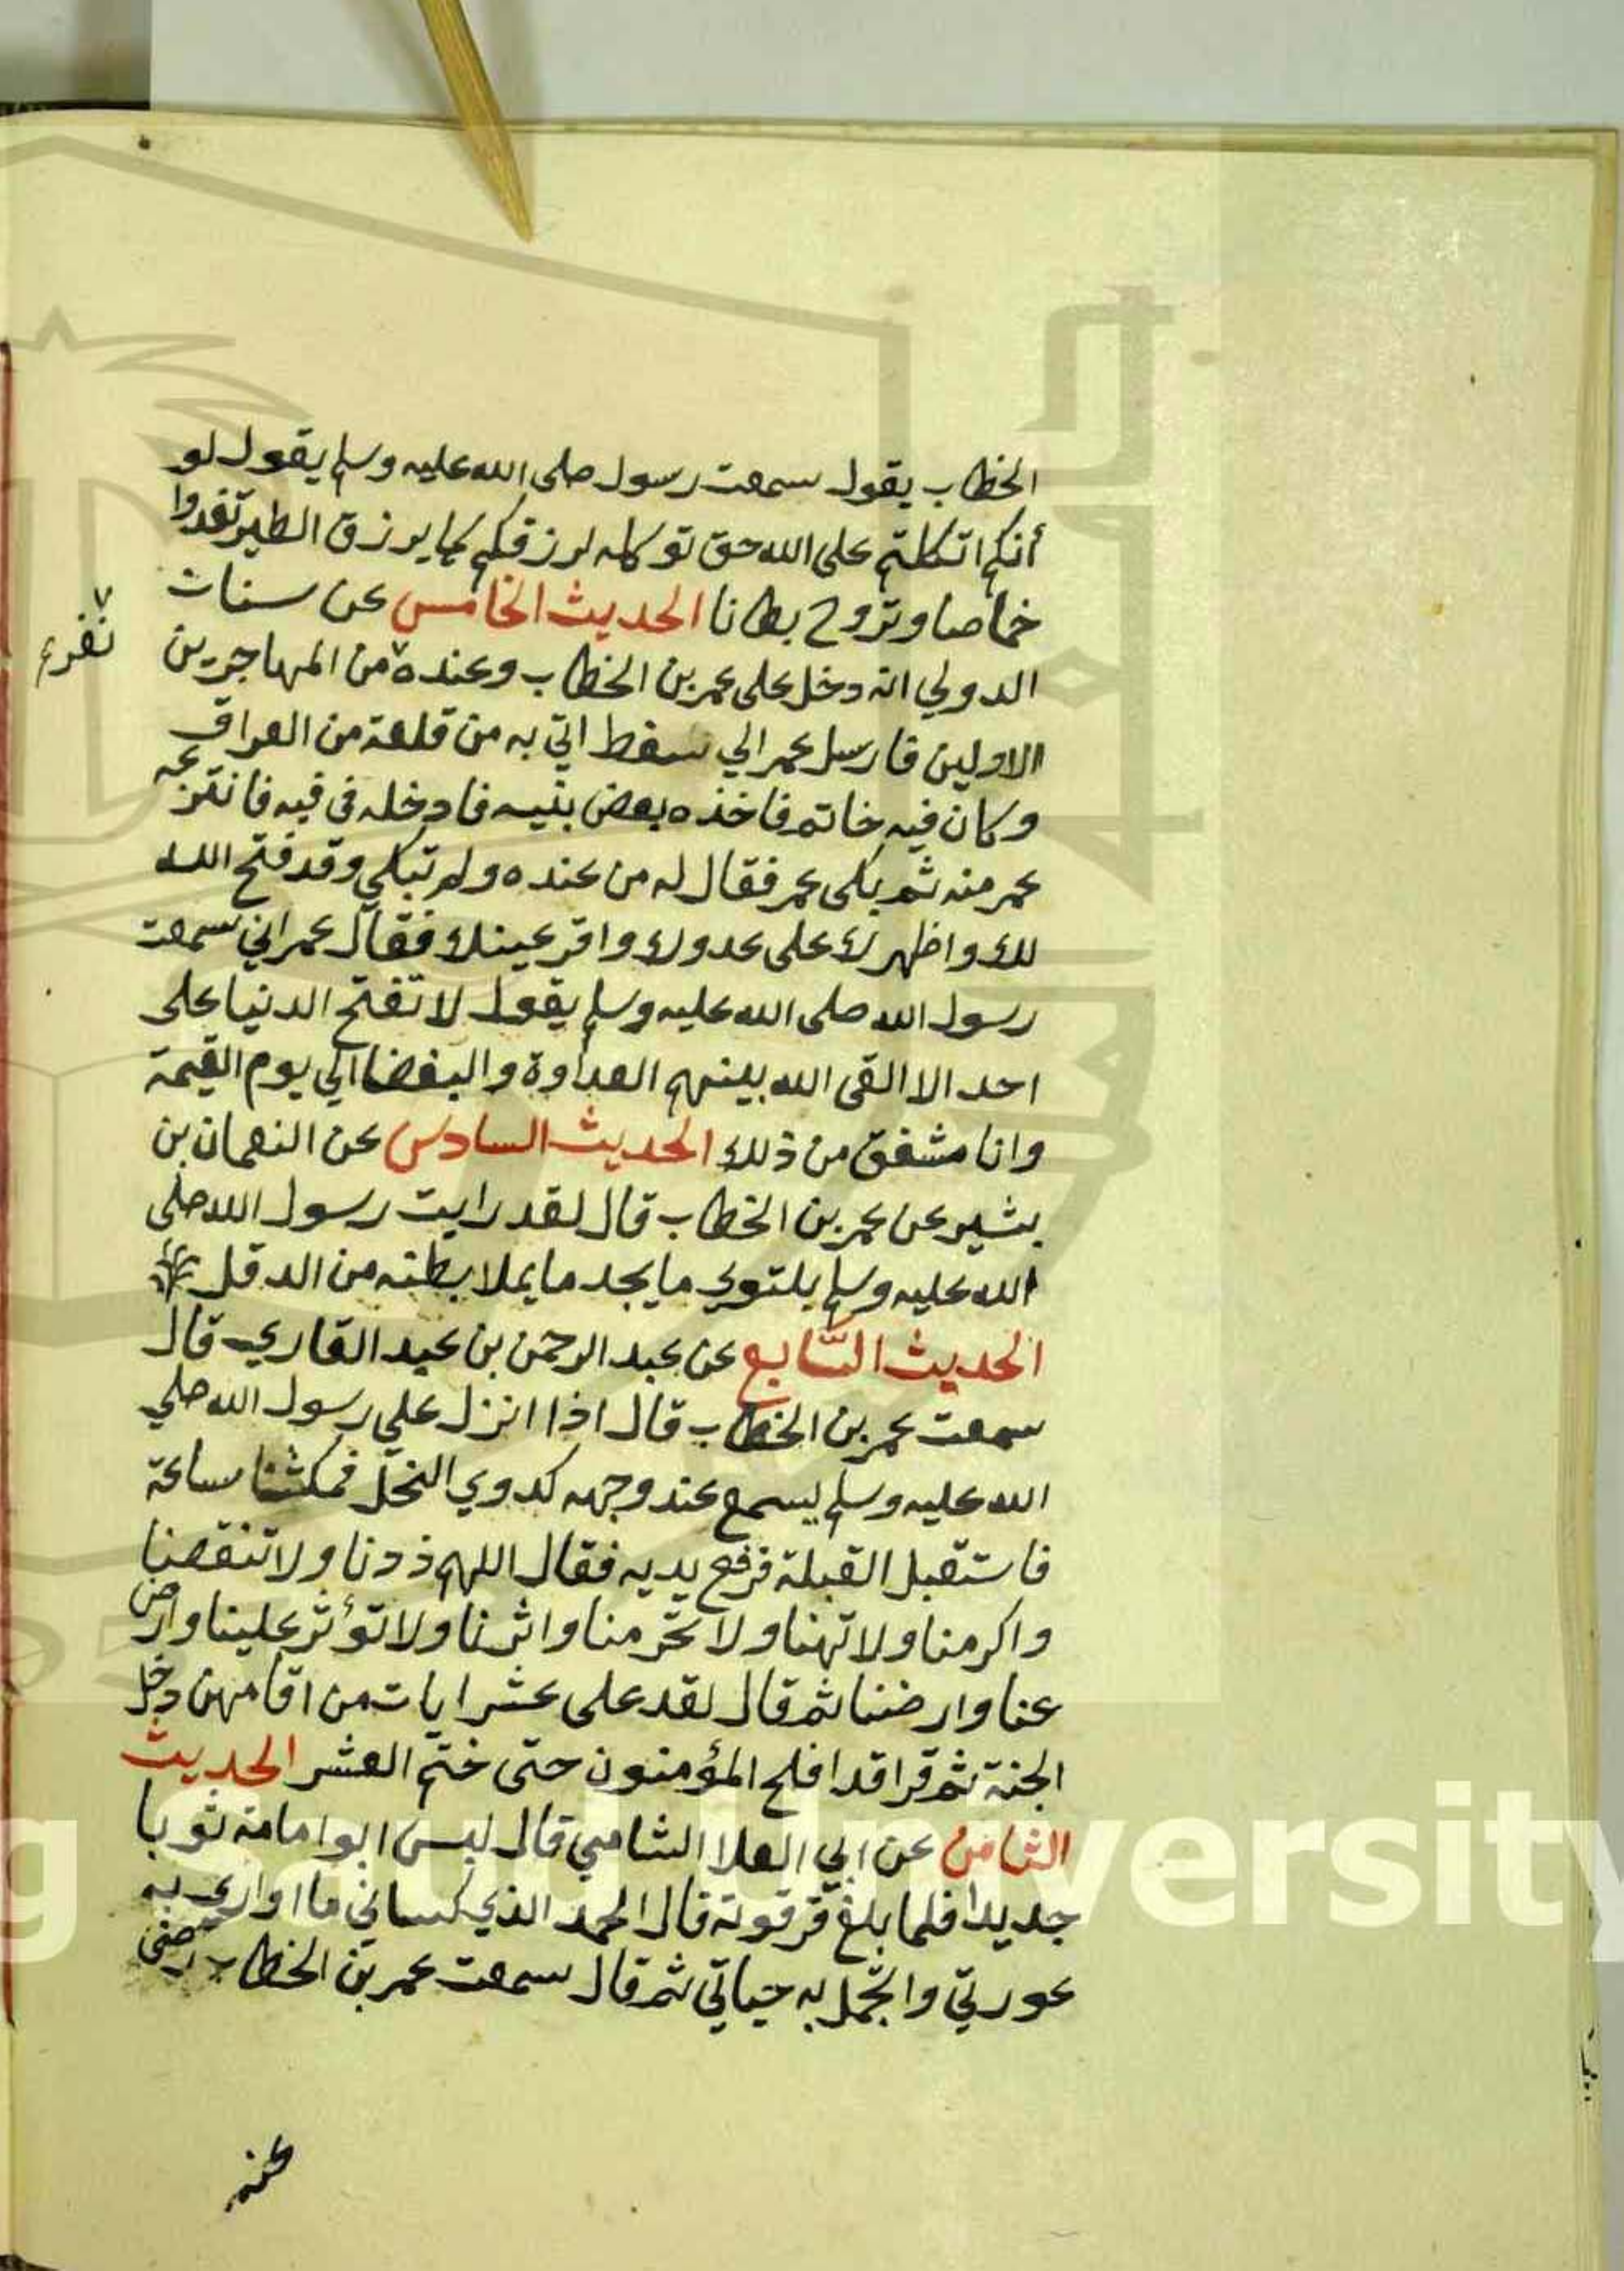 الخطاب يقول سمعت رسول صلى الله عليه وسلم يقول لو
أنكم اتكلتم على الله حق توكله لرزقكم كما يرزق الطير تغدوا
خماصا وتروح بطانا الحديث الخامس عن سنان
الدولي انه دخل على عمر بن الخطاب وعنده من المهاجرين
نفر
الاولين فارسل عمر الي سفط اتي به من قلعة من العراق
وكان فيه خاتم فاخذه بعض بنيه فادخله في فيه فانتزعه
عمر منه ثم بكى عمر فقال له من عنده ولم تبكي وقد فتح الله
لك واظهرك على عدوك واقر عينك فقال عمر اني سمعت
رسول الله صلى الله عليه وسلم يقول لا تفتح الدنيا على
احد الا القى الله بينهم العداوة والبغضا الي يوم القيمة
وانا مشفق من ذلك الحديث السادس عن النعمان بن
بشير عن عمر بن الخطاب قال لقد رايت رسول الله صلى
الله عليه وسلم يلتوي ما يجد ما يملا بطنه من الدقل
الحديث السابع عن عبد الرحمن بن عبد القاري قال
سمعت عمر بن الخطاب قال اذا انزل علي رسول الله صلي
الله عليه وسلم يسمع عند وجهه كدوي النحل فمكثنا ساعة
فاستقبل القبلة فرفع يديه فقال اللهم زدنا ولا تنقصنا
واكرمنا ولا تهنا ولا تحرمنا واثرنا ولا تؤثر علينا وارض
عنا وارضنا ثم قال لقد على عشر ايات من اقامهن دخل
الجنة ثم قرا قد افلح المؤمنون حتى ختم العشر الحديث
الثامن عن ابي العلا الشامي قال لبس ابو امامة ثوبا
جديدا فلما بلغ ترقوته قال الحمد الذي كساني ما اواري به
عورتي واتجمل به حياتي ثم قال سمعت عمر بن الخطاب رضى
عنه
g Saud University